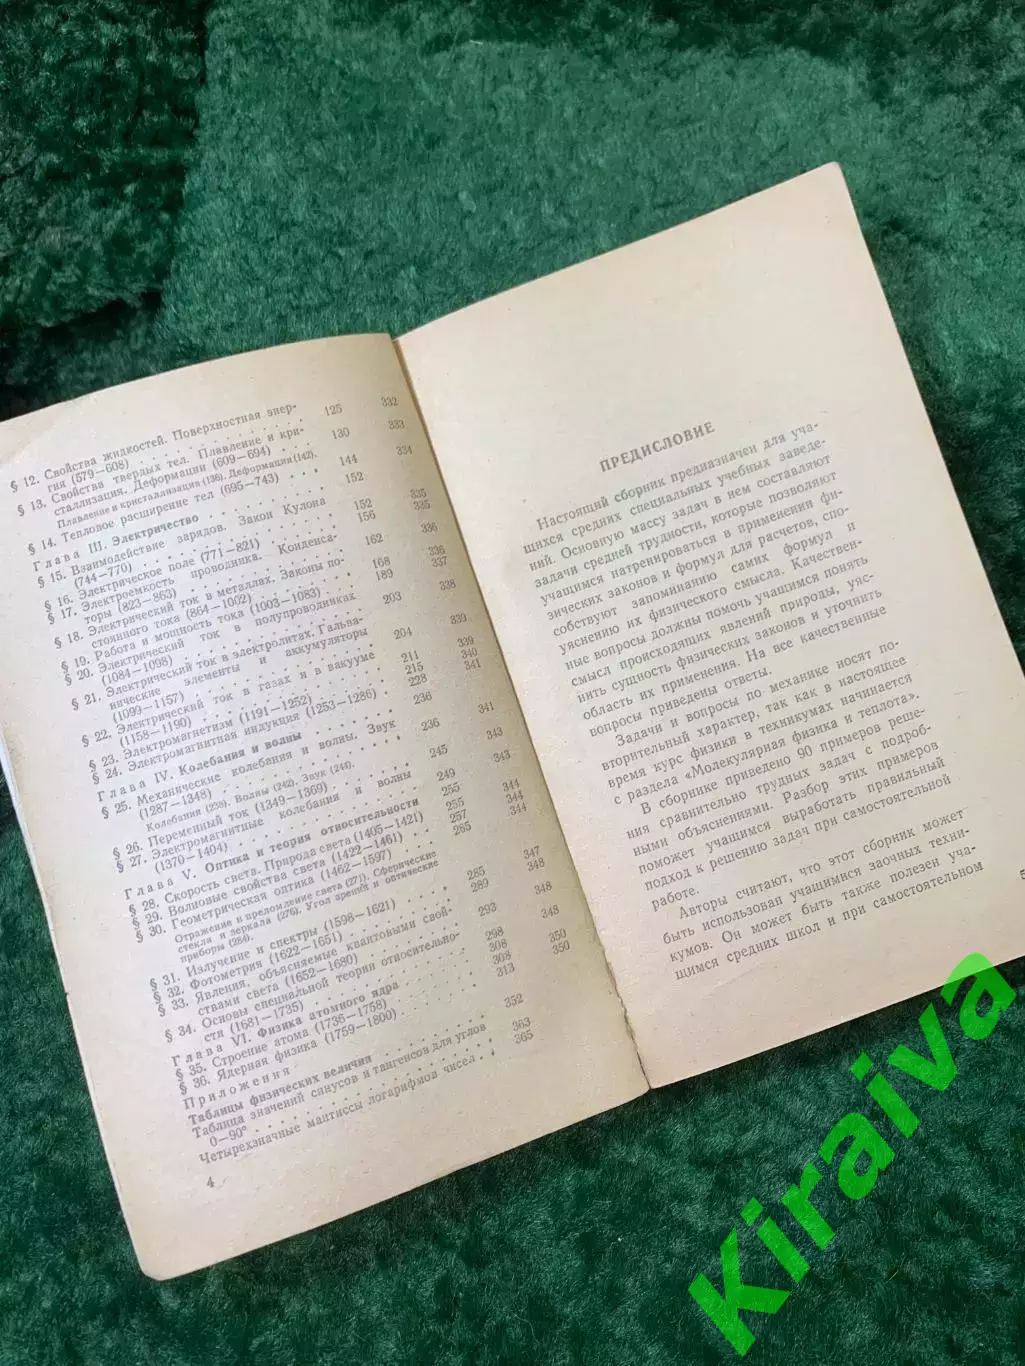 § 12. Свойства жидкостей. Поверхностная энер-
гия (579—608) . . . . . . . . 125 332
§ 13. Свойства твердых тел. Плавление и кри-
сталлизация. Деформации (609—694) . . . 130 333
Плавление и кристаллизация (136). Деформация (142).
§ 14. Тепловое расширение тел (695—743) . . 144 334
Глава III. Электричество . . . . . 152
§ 15. Взаимодействие зарядов. Закон Кулона
(744—770) . . . . . . . . 152 335
§ 16. Электрическое поле (771—821) . . . 156 335
§ 17. Электроемкость проводника. Конденса-
торы (823—863) . . . . . . . 162 336
§ 18. Электрический ток в металлах. Законы по-
стоянного тока (864—1002) . . . . 168 336
§ 19. Работа и мощность тока (1003—1083) . . 189 337
§ 20. Электрический ток в полупроводниках
(1084—1098) . . . . . . . . 203 338
§ 21. Электрический ток в электролитах. Гальва-
нические элементы и аккумуляторы
(1099—1157) . . . . . . . . 204 339
§ 22. Электрический ток в газах и в вакууме
(1158—1190) . . . . . . . . 211 339
§ 23. Электромагнетизм (1191—1252) . . . 215 340
§ 24. Электромагнитная индукция (1253—1286) . 228 341
Глава IV. Колебания и волны . . . . 236
§ 25. Механические колебания и волны. Звук
(1287—1348) . . . . . . . . 236 341
Колебания (238). Волны (242). Звук (244).
§ 26. Переменный ток (1349—1369) . . . . 245 343
§ 27. Электромагнитные колебания и волны
(1370—1404) . . . . . . . . 249 343
Глава V. Оптика и теория относительности 255
§ 28. Скорость света. Природа света (1405—1421) 255 344
§ 29. Волновые свойства света (1422—1461) . . 257 344
§ 30. Геометрическая оптика (1462—1597) . . 265 344
Отражение и преломление света (271). Сферические
стекла и зеркала (276). Угол зрения и оптические
приборы (284).
§ 31. Излучение и спектры (1598—1621) . . . 285 347
§ 32. Фотометрия (1622—1651) . . . . . 289 348
§ 33. Явления, объясняемые квантовыми свой-
ствами света (1652—1680) . . . . . 293 348
§ 34. Основы специальной теории относительно-
сти (1681—1735) . . . . . . . 298 348
Глава VI. Физика атомного ядра . . . 308
§ 35. Строение атома (1736—1758) . . . . 308 350
§ 36. Ядерная физика (1759—1800) . . . . 313 350
Приложения
Таблицы физических величин . . . . . 352
Таблица значений синусов и тангенсов для углов
0—90° . . . . . . . . . . 363
Четырехзначные мантиссы логарифмов чисел . . 365
4
ПРЕДИСЛОВИЕ
Настоящий сборник предназначен для уча-
щихся средних специальных учебных заведе-
ний. Основную массу задач в нем составляют
задачи средней трудности, которые позволяют
учащимся натренироваться в применении фи-
зических законов и формул для расчетов, спо-
собствуют запоминанию самих формул и
уяснению их физического смысла. Качествен-
ные вопросы должны помочь учащимся понять
смысл происходящих явлений природы, уяс-
нить сущность физических законов и уточнить
область их применения. На все качественные
вопросы приведены ответы.
Задачи и вопросы по механике носят по-
вторительный характер, так как в настоящее
время курс физики в техникумах начинается
с раздела «Молекулярная физика и теплота».
В сборнике приведено 90 примеров реше-
ния сравнительно трудных задач с подроб-
ными объяснениями. Разбор этих примеров
поможет учащимся выработать правильный
подход к решению задач при самостоятельной
работе.
Авторы считают, что этот сборник может
быть использован учащимися заочных техни-
кумов. Он может быть также полезен уча-
щимся средних школ и при самостоятельном
5
Kiraiva